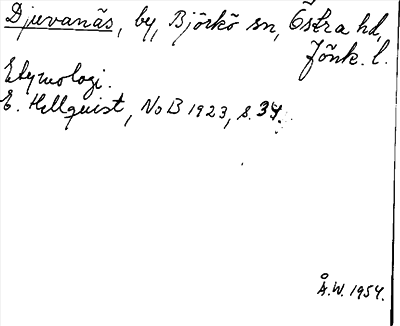 Djuvanäs, by, Björkö sn, Östra hd,
Jönk. l.
Etymologi.
E. Hellquist, NoB 1923, s. 34.
Å.W. 1954.